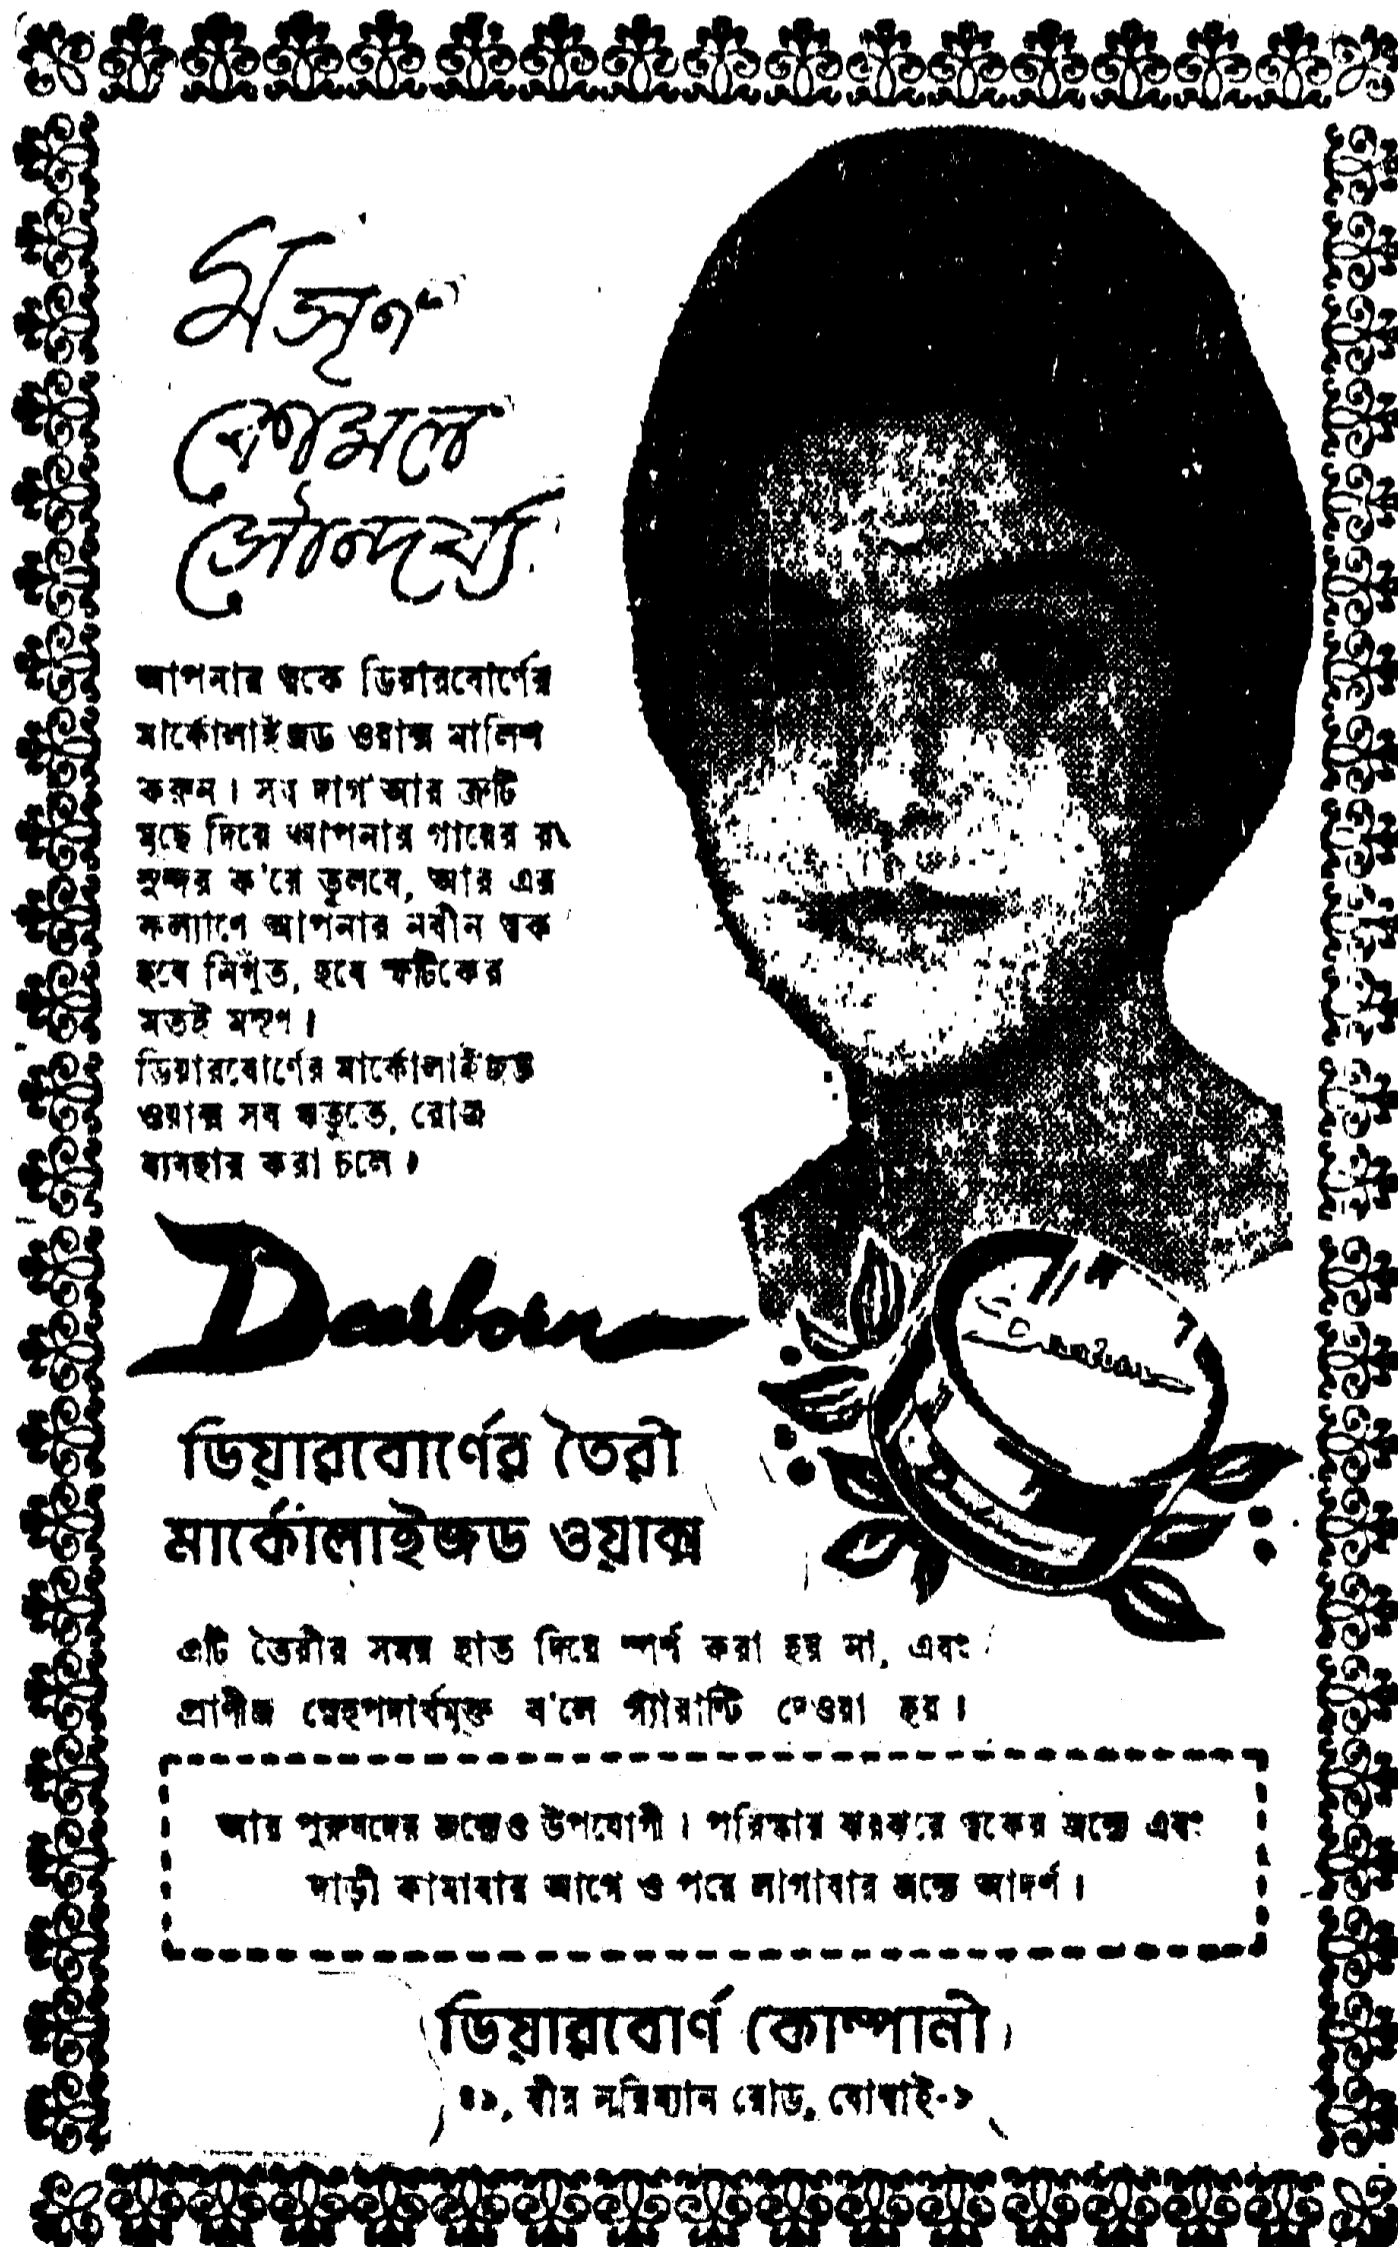 মসৃণ
কোমল
সৌন্দর্য্য
আপনার ত্বকে ডিয়ারবোর্ণের
মার্কোলাইজড ওয়াক্স মালিশ
করুন। সব দাগ আর ত্রুটি
মুছে দিয়ে আপনার গায়ের রং
সুন্দর ক'রে তুলবে, আর এর
কল্যাণে আপনার নবীন ত্বক
হবে নিখুঁত, হবে স্ফটিকের
মতই মসৃণ।
ডিয়ারবোর্ণের মার্কোলাইজড
ওয়াক্স সব ঋতুতে, রোজ
ব্যবহার করা চলে।
Dearborn
Dearborn
ডিয়ারবোর্ণের তৈরী
মার্কোলাইজড ওয়াক্স
এটি তৈরীর সময় হাত দিয়ে স্পর্শ করা হয় না, এবং
প্রাণীজ স্নেহপদার্থমুক্ত ব'লে গ্যারান্টি দেওয়া হয়।
আর পুরুষদের জন্যেও উপযোগী। পরিস্কার ঝরঝরে ত্বকের জন্যে এবং
দাড়ী কামাবার আগে ও পরে লাগাবার জন্যে আদর্শ।
ডিয়ারবোর্ণ কোম্পানী
৪৯, বীর নরিম্যান রোড, বোম্বাই-১